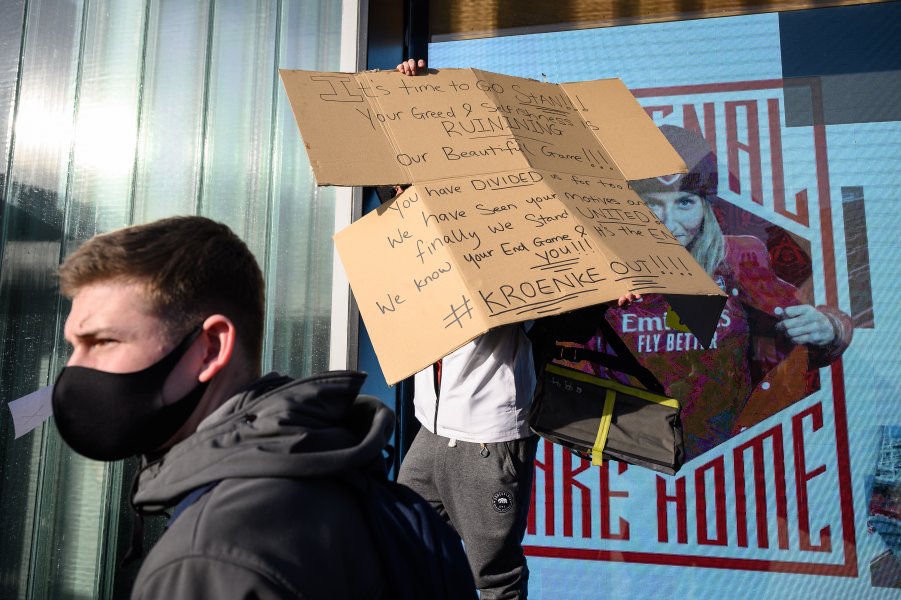 It's time to GO STAN!!!
Your Greed & Selfishness is
RUINING
Our Beautiful Game!!!
you have DIVIDED us for too
We have seen your motives and
finally we Stand UNITED!
We know your End Game & it's the END
YOU!!!
#KROENKE OUT!!!!
NAL
Emirates
FLY BETTER
HOME